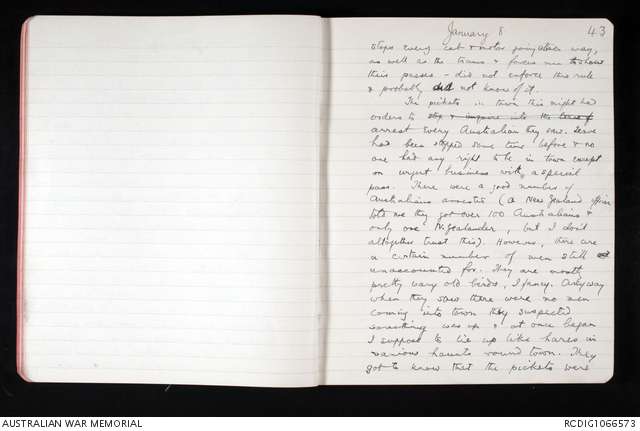 January 8 43
stops every cab & motor going either way,
as well as the trams & forces men to show
their passes. - did not enforce this rule
& probably did not know of it.
The pickets in town this night had
orders to stop & enquire into the time of
arrest every Australian they saw. Leave
had been stopped some time before & no
one had any right to be in town except
on urgent business with a special
pass. There were a good number of
Australians arrested (a New Zealand officer
told me they got over 100 Australians &
only one N. Zealander, but I don't
altogether trust this). However, there are
a certain number of men still
unaccounted for. They are mostly
pretty wary old birds, I fancy. Anyway
when they saw there were no men
coming into town they suspected
something was up & at once began
I suppose to lie up like hares in
various haunts round town. They
got to know that the pickets were
AUSTRALIAN WAR MEMORIAL RCDIG1066573